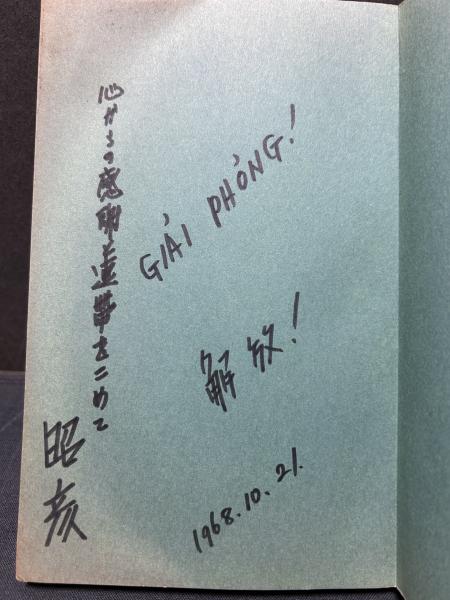 心からの感謝と連帯をこめて
昭彦
GIẢI PHỎNG!
解放!
1968.10.21.